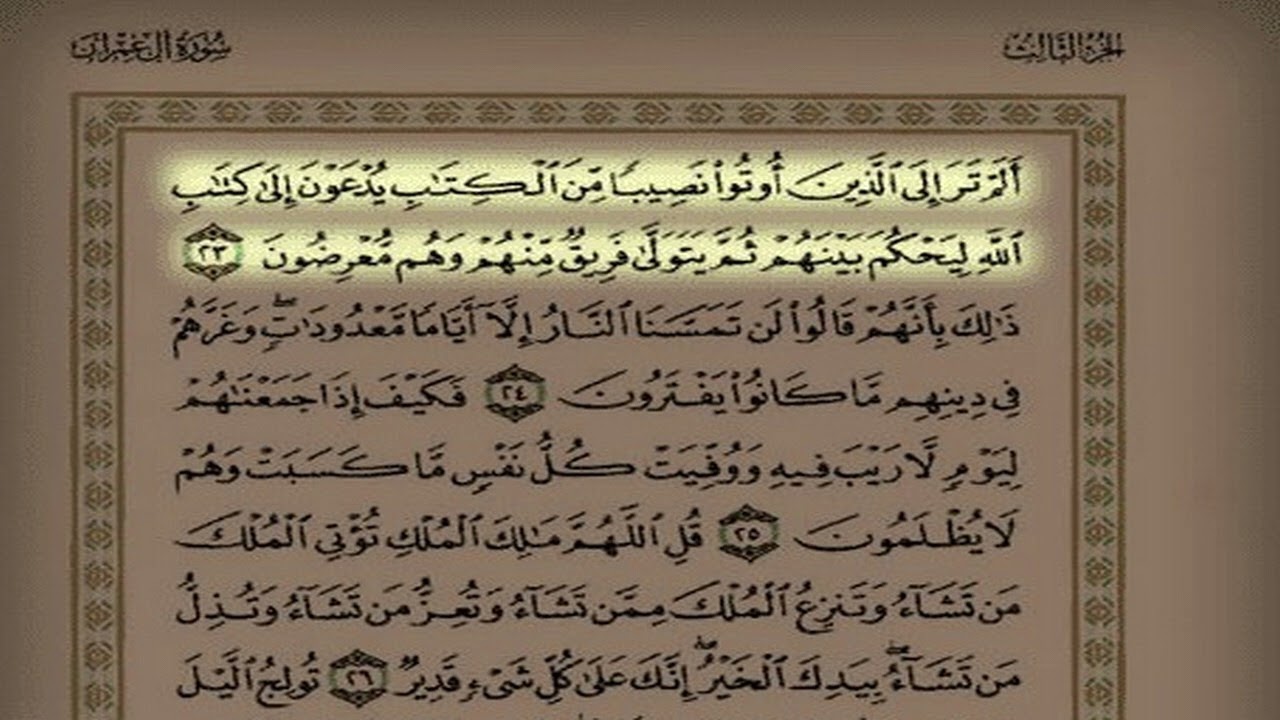 الجزء الثالث
سورة آل عمران
أَلَمْ تَرَ إِلَى ٱلَّذِينَ أُوتُوا۟ نَصِيبًا مِّنَ ٱلْكِتَٰبِ يُدْعَوْنَ إِلَىٰ كِتَٰبِ
ٱللَّهِ لِيَحْكُمَ بَيْنَهُمْ ثُمَّ يَتَوَلَّىٰ فَرِيقٌ مِّنْهُمْ وَهُم مُّعْرِضُونَ ٢٣
ذَٰلِكَ بِأَنَّهُمْ قَالُوا۟ لَن تَمَسَّنَا ٱلنَّارُ إِلَّآ أَيَّامًا مَّعْدُودَٰتٍ ۖ وَغَرَّهُمْ
فِى دِينِهِم مَّا كَانُوا۟ يَفْتَرُونَ ٢٤ فَكَيْفَ إِذَا جَمَعْنَٰهُمْ
لِيَوْمٍ لَّا رَيْبَ فِيهِ وَوُفِّيَتْ كُلُّ نَفْسٍ مَّا كَسَبَتْ وَهُمْ
لَا يُظْلَمُونَ ٢٥ قُلِ ٱللَّهُمَّ مَٰلِكَ ٱلْمُلْكِ تُؤْتِى ٱلْمُلْكَ
مَن تَشَآءُ وَتَنزِعُ ٱلْمُلْكَ مِمَّن تَشَآءُ وَتُعِزُّ مَن تَشَآءُ وَتُذِلُّ
مَن تَشَآءُ ۖ بِيَدِكَ ٱلْخَيْرُ ۖ إِنَّكَ عَلَىٰ كُلِّ شَىْءٍ قَدِيرٌ ٢٦ تُولِجُ ٱلَّيْلَ